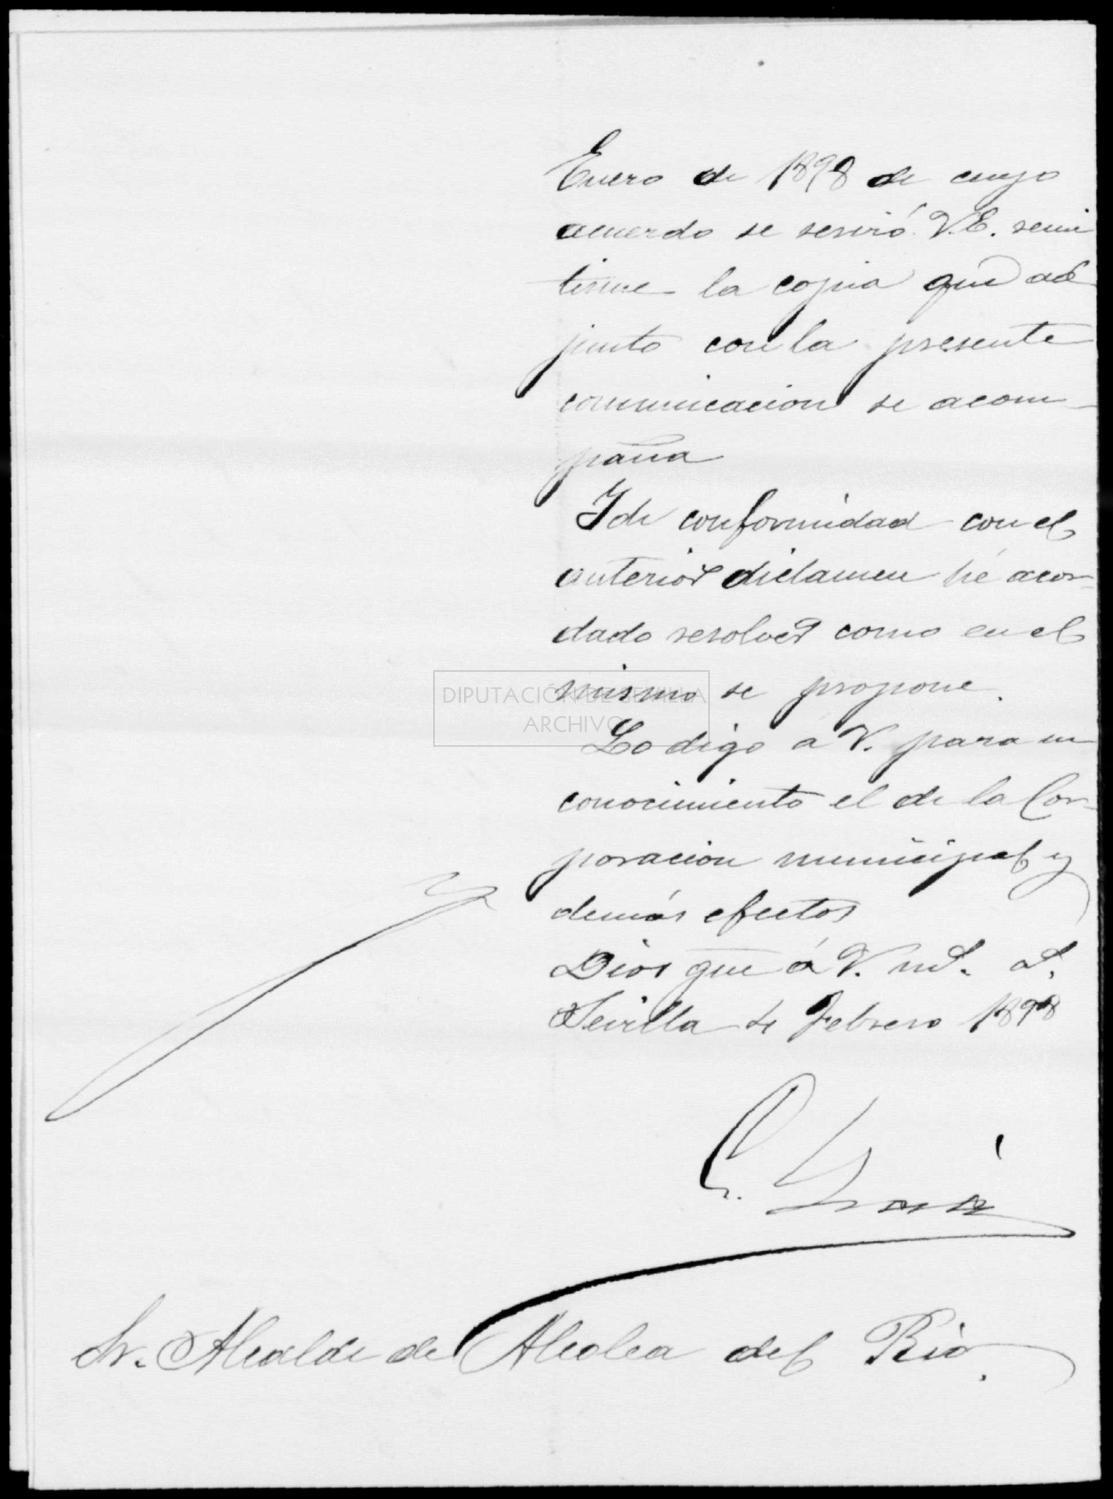 Enero de 1898 de cuyo
acuerdo se servió V.E. remi
tirme la copia que ad
junto con la presente
comunicacion se acom-
paña
Y de conformidad con el
anterior dictamen hé acor-
dado resolver como en el
mismo se propone.
DIPUTACIÓN DE SEVILLA
ARCHIVO
Lo digo á V. para su
conocimiento el de la Cor-
poracion municipal y
demás efectos
Dios gue á V. ms. as.
Sevilla 4 Febrero 1898
Sr. Alcalde de Alcolea del Rio.